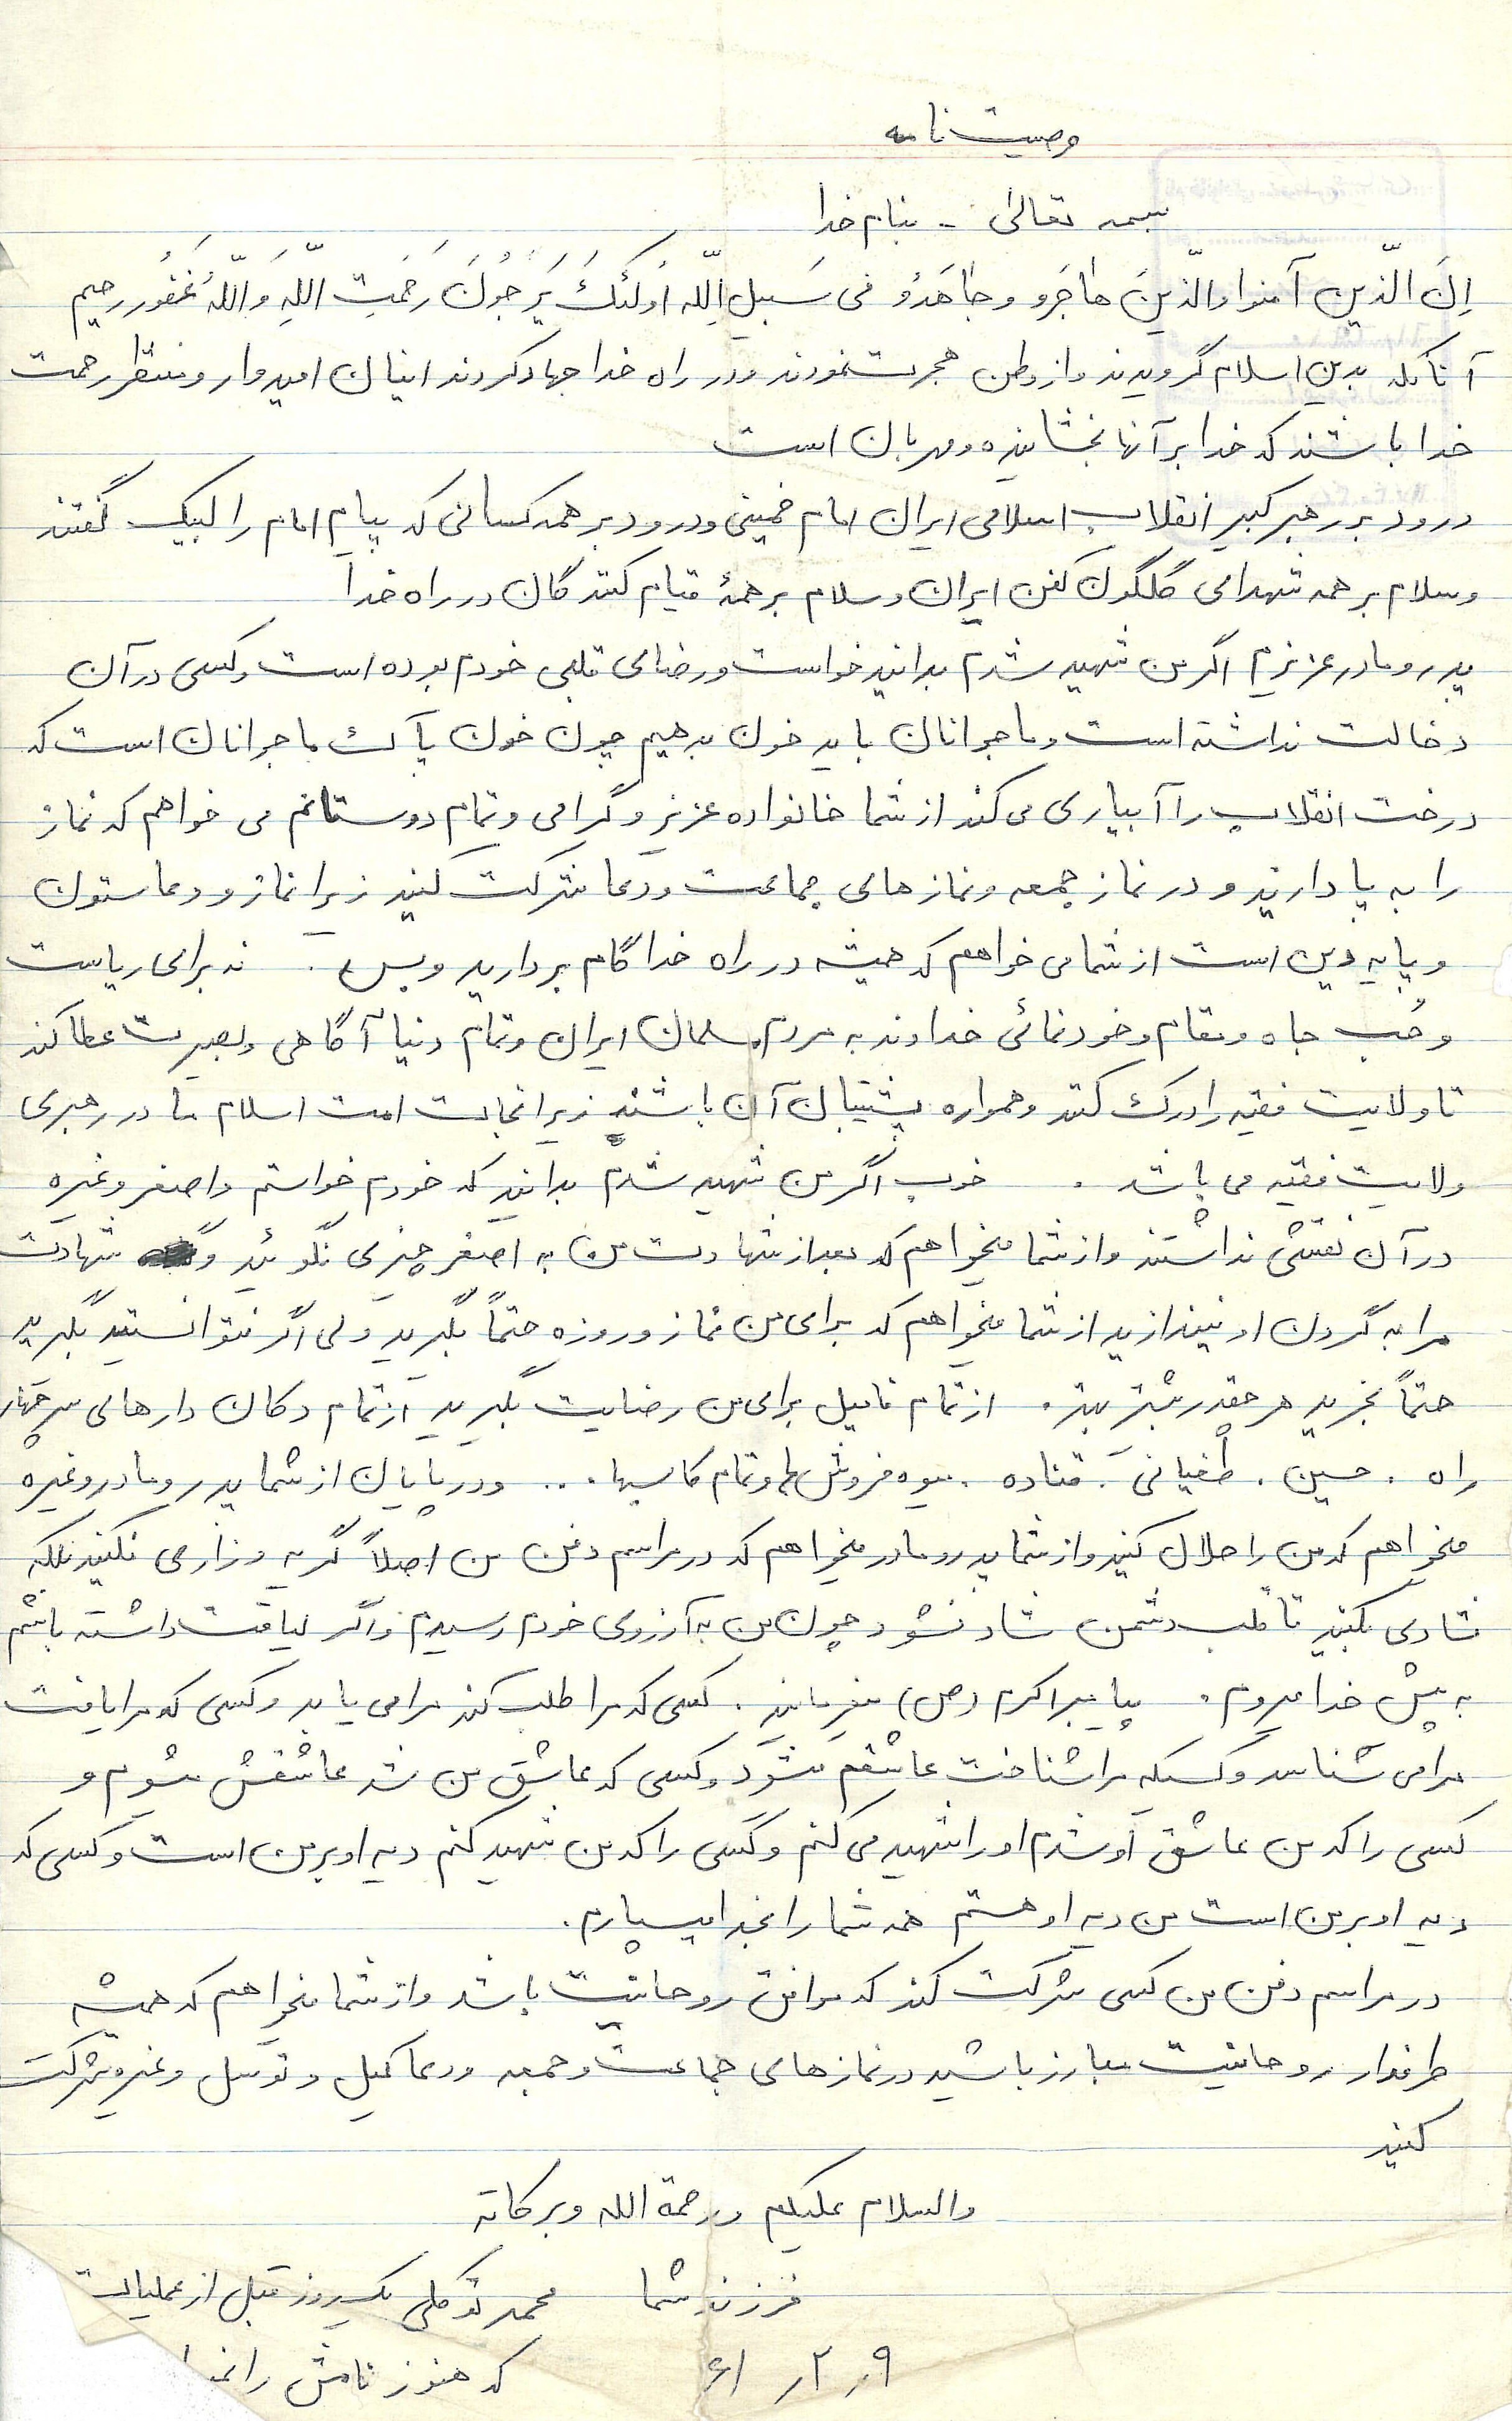 وصیت نامه
بسمه تعالی - بنام خدا
اِنَ الّذین آمنوا والّذینَ هاجَرو و جاهَدُو فی سَبیلِ اللّه اُولئکَ یَرجُونَ رَحمَت اللّهِ وَاللّهُ غَفُور رحیم
آنانکه بدین اسلام گرویدند و از وطن هجرت نمودند و در راه خدا جهاد کردند اینان امیدوار و منتظر رحمت
خدا باشند که خدا بر آنها بخشاینده و مهربان است
درود بر رهبر کبیر انقلاب اسلامی ایران امام خمینی و درود بر همه کسانی که پیام امام را لبیک گفتند
و سلام بر همه شهدای گلگون کفن ایران و سلام بر همهٔ قیام کنندگان در راه خدا
پدر و مادر عزیزم اگر من شهید شدم بدانید خواست و رضای قلبی خودم بوده است و کسی در آن
دخالت نداشته است و ما جوانان باید خون بدهیم چون خون پاک ما جوانان است که
درخت انقلاب را آبیاری می کند از شما خانواده عزیز و گرامی و تمام دوستانم می خواهم که نماز
را به پا دارید و در نماز جمعه و نمازهای جماعت و دعا شرکت کنید زیرا نماز و دعا ستون
و پایه دین است از شما می خواهم که همیشه در راه خدا گام بردارید و بس . نه برای ریاست
و حُب جاه و مقام و خودنمائی خداوند به مردم مسلمان ایران و تمام دنیا آگاهی و بصیرت عطا کند
تا ولایت فقیه را درک کنند و همواره پشتیبان آن باشند زیرا نجات امت اسلام ما در رهبری
ولایت فقیه می باشد . خوب اگر من شهید شدم بدانید که خودم خواستم و اصغر و غیره
در آن نقشی نداشتند و از شما میخواهم که بعد از شهادت من به اصغر چیزی نگوئید و شهادت
مرا به گردن او نیندازید از شما میخواهم که برای من نماز و روزه حتماً بگیرید ولی اگر نتوانستید بگیرید
حتماً بخرید هر چقدر بیشتر بهتر . از تمام فامیل برای من رضایت بگیرید از تمام دکان دارهای سر چهار
راه . حسین . طغیانی . قناده . میوه فروش ها و تمام کاسبها ... و در پایان از شما پدر و مادر و غیره
میخواهم که من را حلال کنید و از شما پدر و مادر میخواهم که در مراسم دفن من اصلاً گریه و زاری نکنید بلکه
شادی بکنید تا قلب دشمن شاد نشود چون من به آرزوی خودم رسیدم و اگر لیاقت داشته باشم
به پیش خدا میروم . پیامبر اکرم (ص) میفرمایند . کسی که مرا طلب کند مرا می یابد و کسی که مرا یافت
مرا می شناسد و کسیکه مرا شناخت عاشقم میشود و کسی که عاشق من شد عاشقش میشوم و
کسی را که من عاشق او شدم او را شهید می کنم و کسی را که من شهید کنم دیه او بر من است و کسی که
دیه او بر من است من دیه او هستم همه شما را بخدا میسپارم .
در مراسم دفن من کسی شرکت کند که موافق روحانیت باشد و از شما میخواهم که همیشه
طرفدار روحانیت مبارز باشید در نمازهای جماعت و جمعه و دعا کمیل و توسل و غیره شرکت
کنید
والسلام علیکم و رحمة الله و برکاته
فرزند شما محمد توکلی یکروز قبل از عملیات
۹ ر ۲ ر ۶۱ که هنوز نامش را